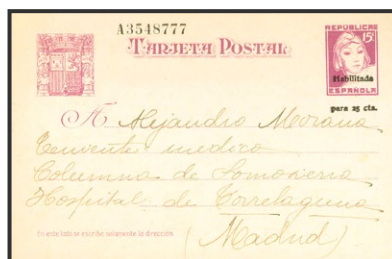 A3548777
TARJETA POSTAL
REPUBLICA
15c
Habilitada
ESPAÑOLA
para 25 cta.
A Alejandro Moriana
Teniente medico
Columna de Somosierra
Hospital de Torrelaguna
(Madrid)
En este lado se escribe solamente la dirección